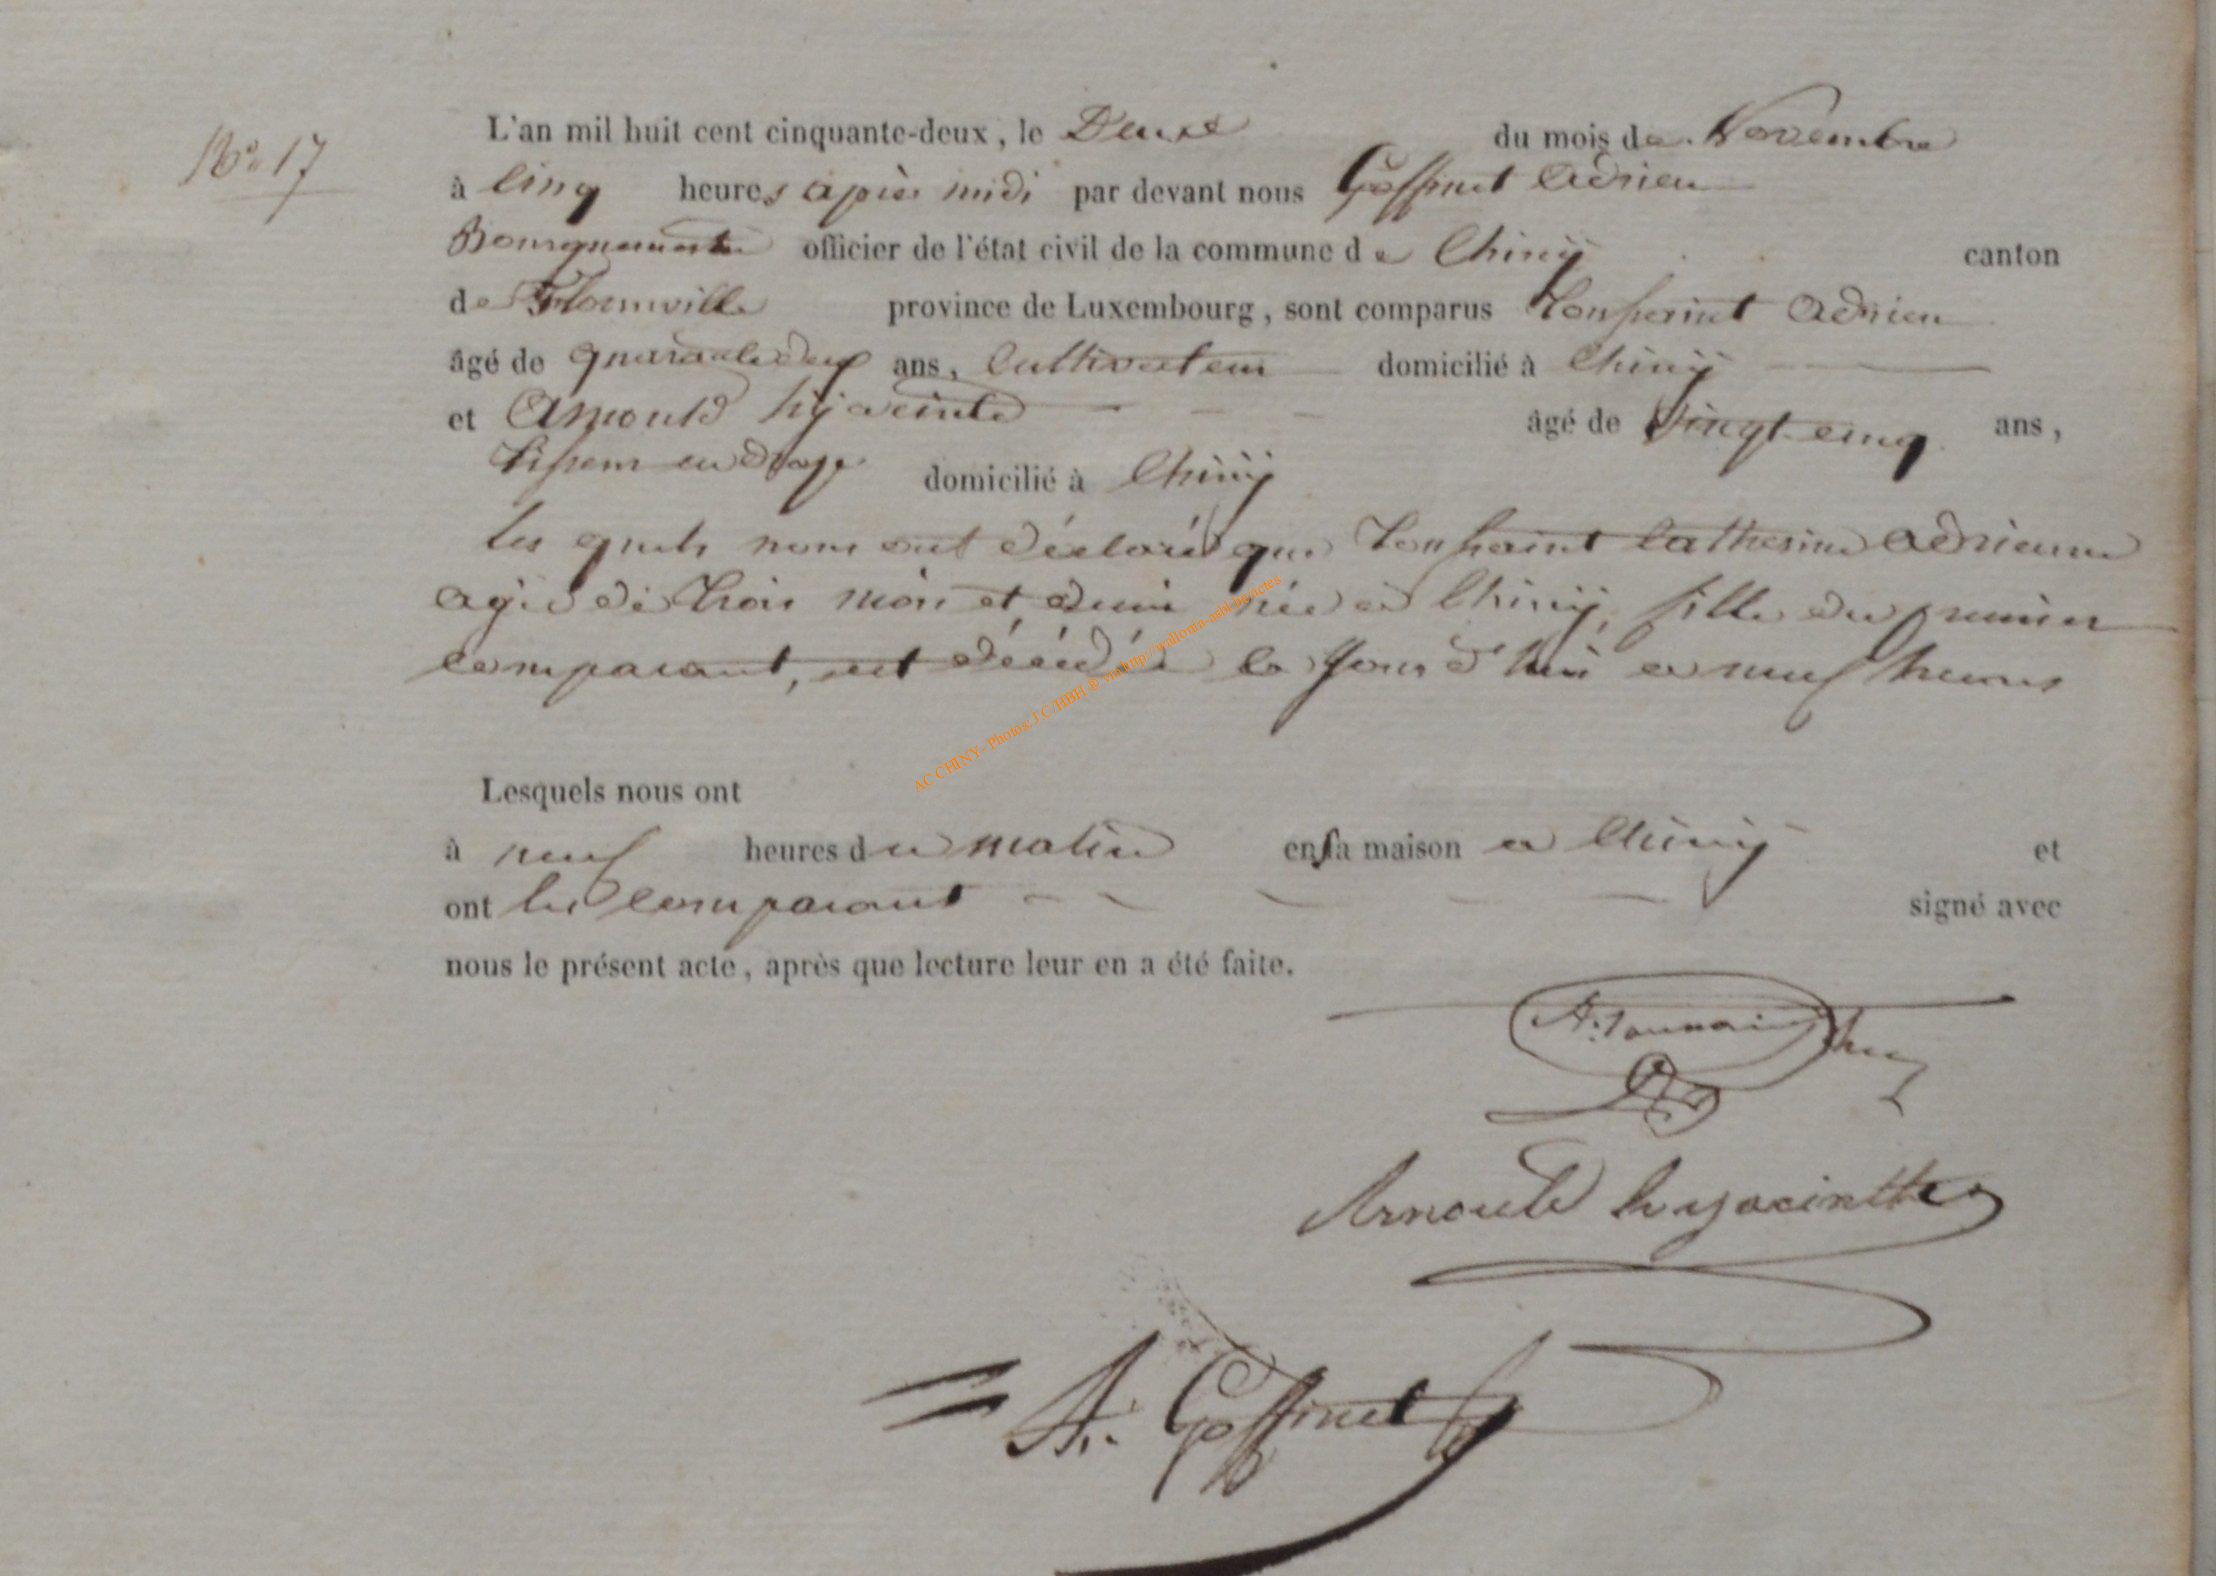 No 17
L'an mil huit cent cinquante-deux, le Deux du mois de Novembre
à Cinq heures après midi par devant nous Goffinet Adrien
Bourguemestre officier de l'état civil de la commune de Chiny canton
de Florenville province de Luxembourg, sont comparus Toussaint Adrien
âgé de quarante deux ans, Cultivateur domicilié à Chiny
et Arnould hyacinte âgé de Vingt-cinq ans,
domicilié à Chiny
les quels nous ont déclaré que Toussaint Catherine Adrienne
agée de trois mois et demi née à Chiny, fille du premier
comparant, est décédée ce jour d'hui a neuf heures
Lesquels nous ont
à neuf heures du matin en sa maison a Chiny et
ont les comparant signé avec
nous le présent acte, après que lecture leur en a été faite.
A. Toussaint
Arnould hyacinthe
A. Goffinet
AC CHINY - Photos J.C/HBH © via http://wallonia-asbl-be/actes